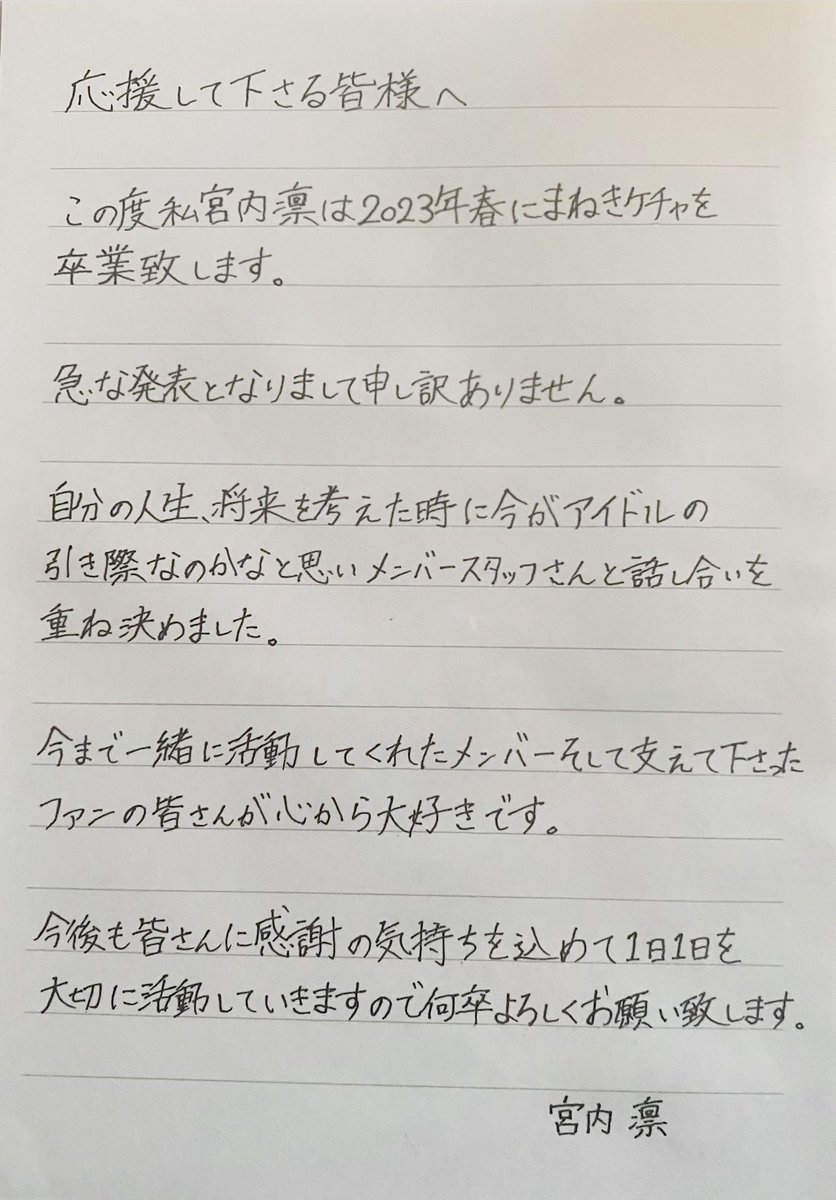 応援して下さる皆様へ
この度私宮内凛は2023年春にまねきケチャを
卒業致します。
急な発表となりまして申し訳ありません。
自分の人生、将来を考えた時に今がアイドルの
引き際なのかなと思いメンバースタッフさんと話し合いを
重ね決めました。
今まで一緒に活動してくれたメンバーそして支えて下さった
ファンの皆さんが心から大好きです。
今後も皆さんに感謝の気持ちを込めて1日1日を
大切に活動していきますので何卒よろしくお願い致します。
宮内 凛